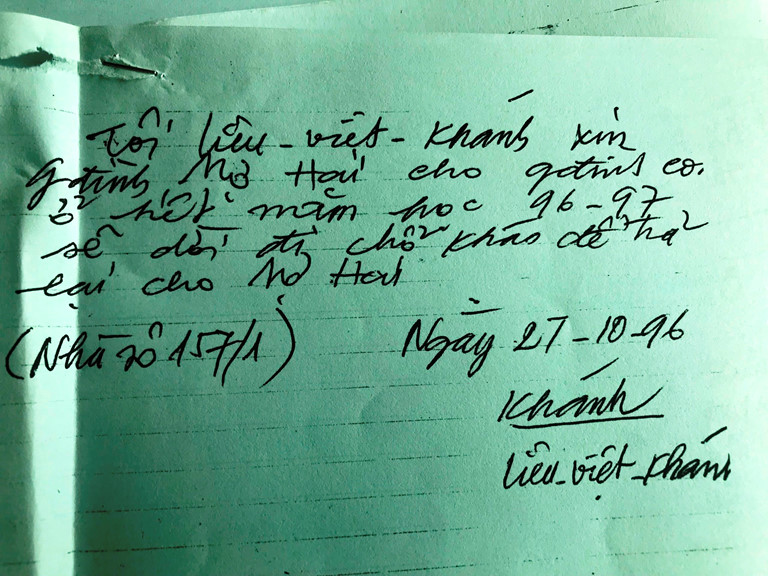 Tôi Liễu-việt-Khánh xin
gđình Mợ Hai cho gđình co.
ở hết năm học 96-97
sẽ dời đi chỗ khác để trả
lại cho Mợ Hai
(Nhà số 157/1)
Ngày 27-10-96
Khánh
Liễu-việt-Khánh